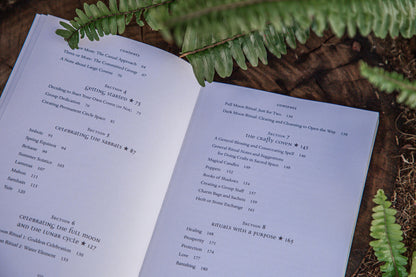 CONTENTS
Two or More: The Casual Approach
Three or More: The Committed Group 67
A Note about Large Covens 70
SECTION 4
GETTING STARTED ★ 73
Deciding to Start Your Own Coven (or Not)
Group Dedication
Creating Permanent Circle Space
SECTION 5
CELEBRATING THE SABBATS ★ 87
Imbolc
Spring Equinox
Beltane
Summer Solstice
Lammas
Mabon 111
Samhain 115
Yule 120
SECTION 6
CELEBRATING THE FULL MOON
AND THE LUNAR CYCLE ★ 127
Moon Ritual 1: Goddess Celebration 130
Moon Ritual 2: Water Element
CONTENTS
Full Moon Ritual: Just for Two 136
Dark Moon Ritual: Clearing and Cleansing to Open the Way 138
SECTION 7
THE CRAFTY COVEN ★ 143
A General Blessing and Consecrating Spell
General Ritual Notes and Suggestions
for Doing Crafts in Sacred Space
Magical Candles
Poppets
Books of Shadows
Creating a Group Staff 157
Charm Bags and Sachets 159
Herb or Stone Exchange 161
SECTION 8
RITUALS WITH A PURPOSE ★ 165
Healing 168
Prosperity 171
Protection 174
Love 177
Banishing 180